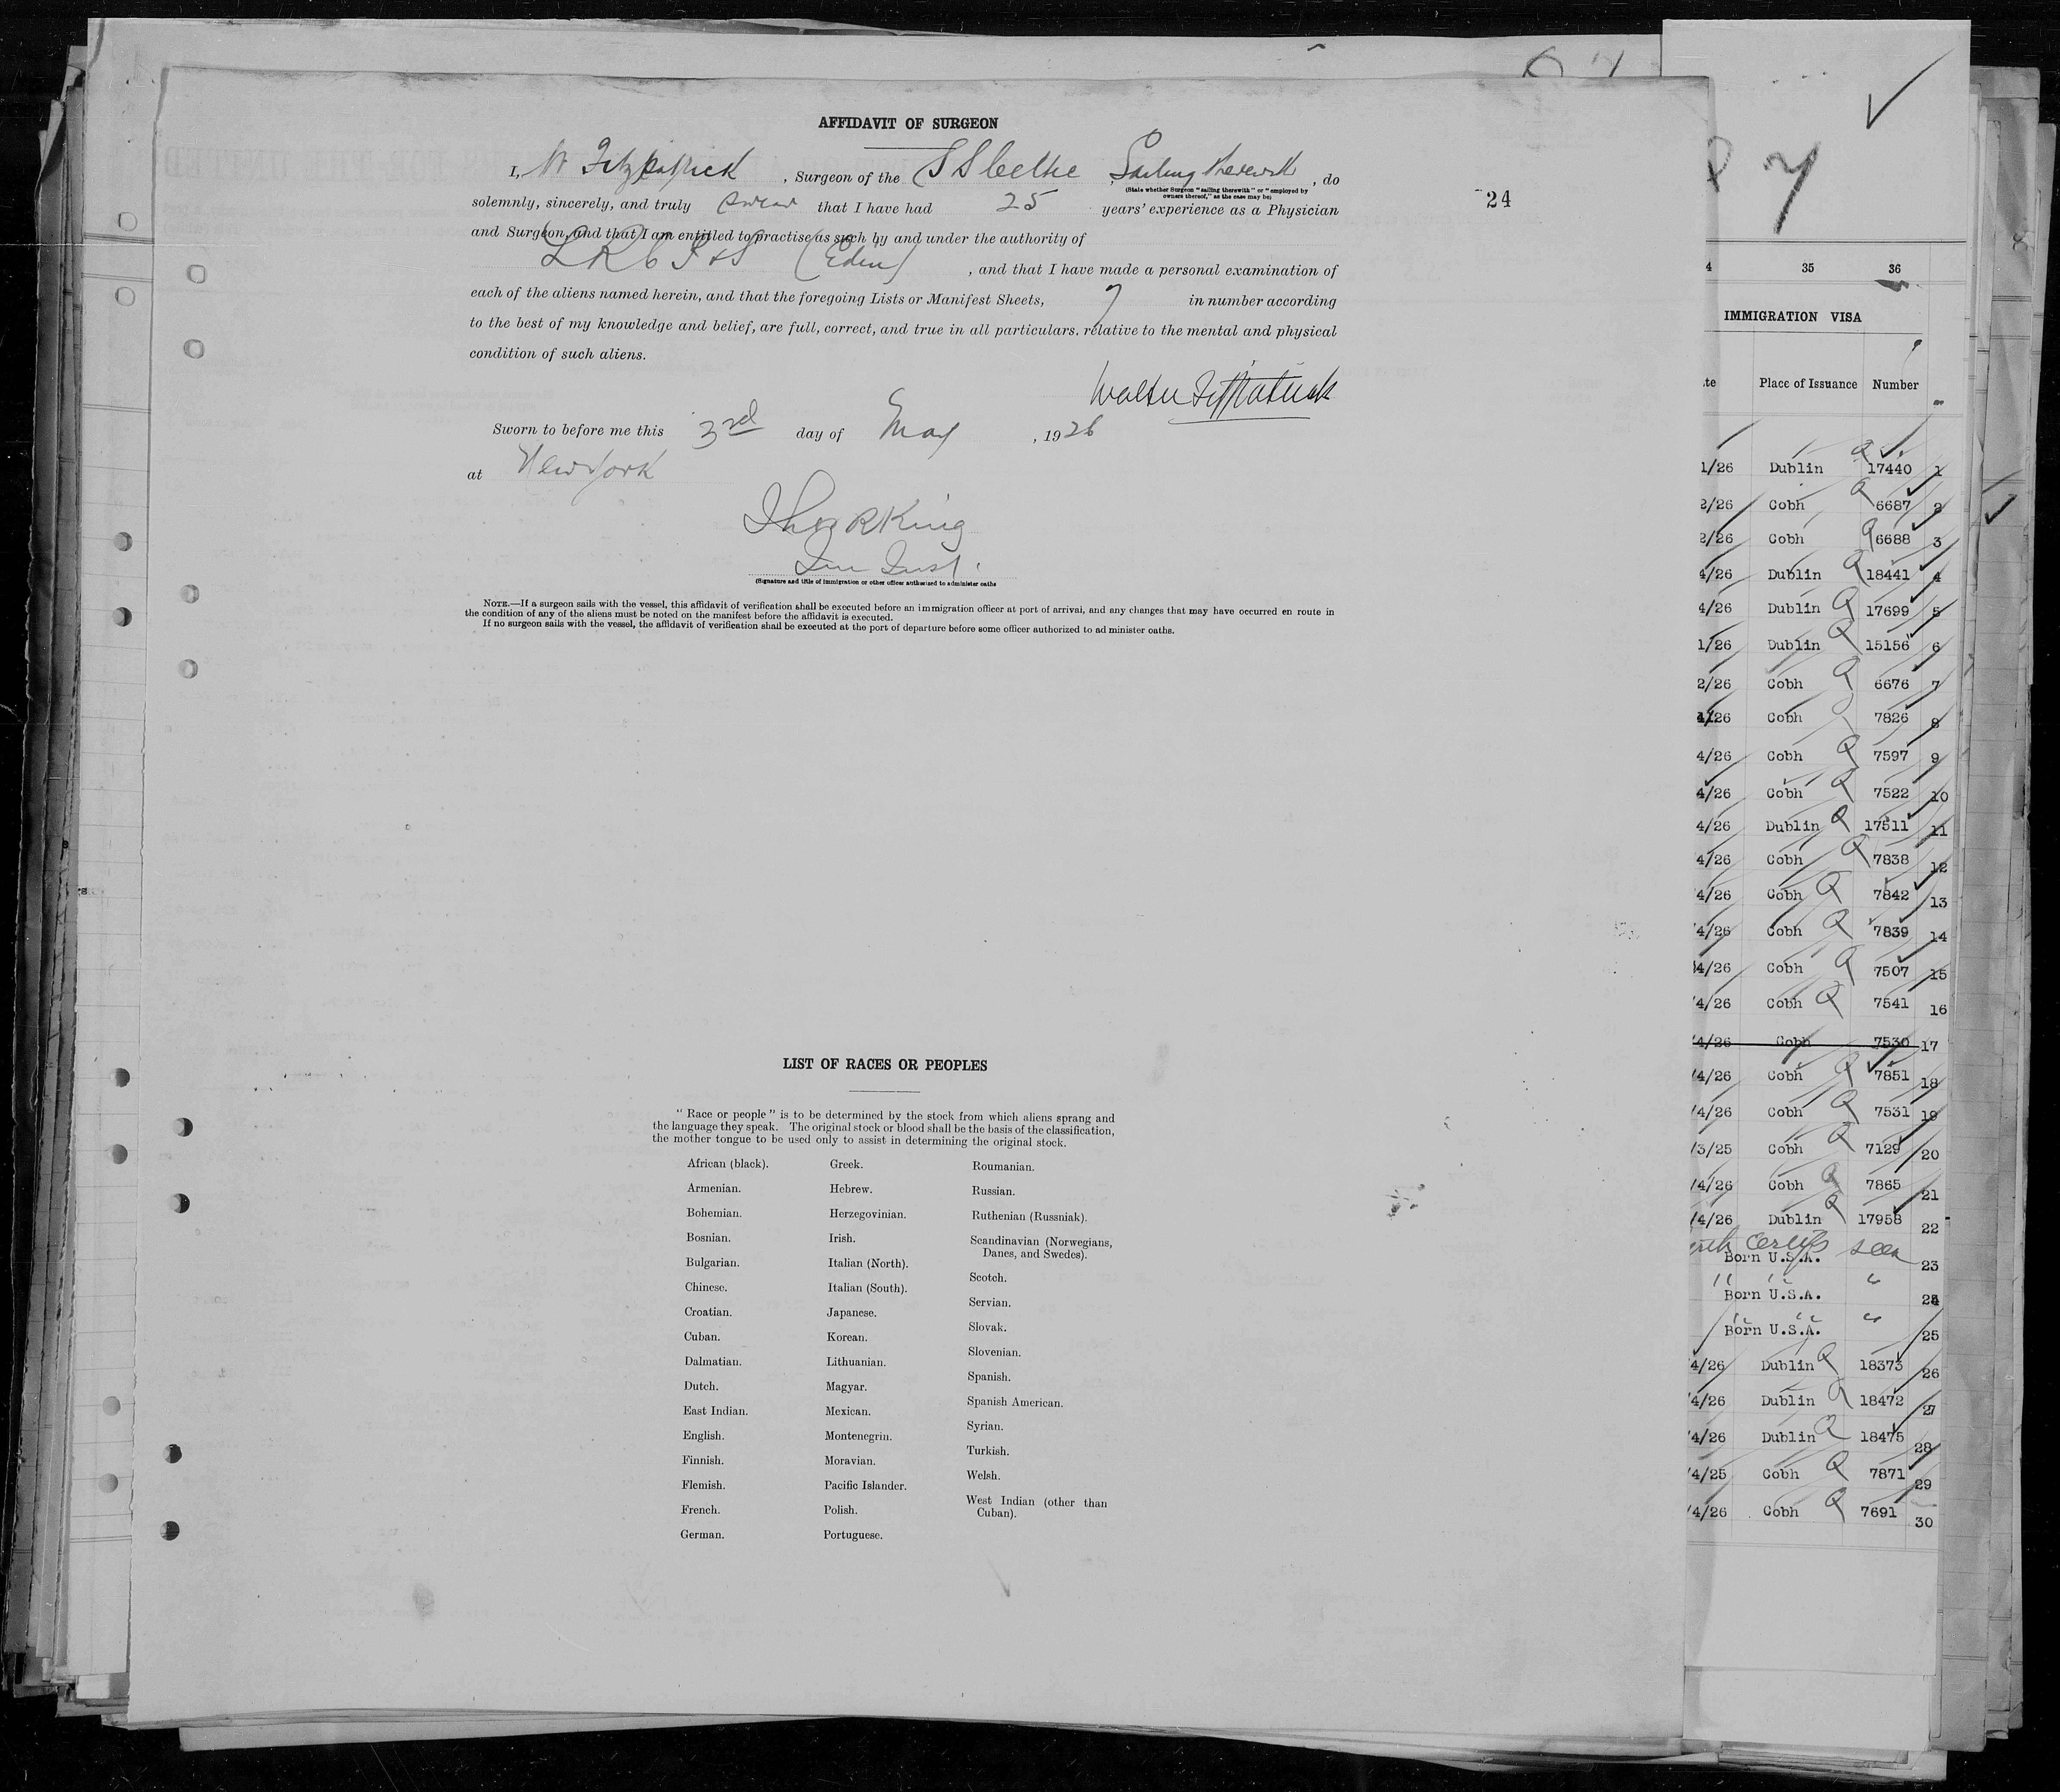 AFFIDAVIT OF SURGEON
I, W Fitzpatrick , Surgeon of the S S Celtic , Sailing therewith , do
(State whether Surgeon "sailing therewith" or "employed by
owners thereof," as the case may be)
24
solemnly, sincerely, and truly swear that I have had 25 years' experience as a Physician
and Surgeon, and that I am entitled to practise as such by and under the authority of
L R C P & S (Edin) , and that I have made a personal examination of
each of the aliens named herein, and that the foregoing Lists or Manifest Sheets, 7 in number according
to the best of my knowledge and belief, are full, correct, and true in all particulars. relative to the mental and physical
condition of such aliens.
Walter Fitzpatrick
Sworn to before me this 3rd day of May , 1926
at New York
Thos R King
Imm Insp.
(Signature and title of immigration or other officer authorized to administer oaths
NOTE.—If a surgeon sails with the vessel, this affidavit of verification shall be executed before an immigration officer at port of arrival, and any changes that may have occurred en route in
the condition of any of the aliens must be noted on the manifest before the affidavit is executed.
If no surgeon sails with the vessel, the affidavit of verification shall be executed at the port of departure before some officer authorized to ad minister oaths.
LIST OF RACES OR PEOPLES
"Race or people" is to be determined by the stock from which aliens sprang and
the language they speak. The original stock or blood shall be the basis of the classification,
the mother tongue to be used only to assist in determining the original stock.
African (black).
Armenian.
Bohemian.
Bosnian.
Bulgarian.
Chinese.
Croatian.
Cuban.
Dalmatian.
Dutch.
East Indian.
English.
Finnish.
Flemish.
French.
German.
Greek.
Hebrew.
Herzegovinian.
Irish.
Italian (North).
Italian (South).
Japanese.
Korean.
Lithuanian.
Magyar.
Mexican.
Montenegrin.
Moravian.
Pacific Islander.
Polish.
Portuguese.
Roumanian.
Russian.
Ruthenian (Russniak).
Scandinavian (Norwegians,
Danes, and Swedes).
Scotch.
Servian.
Slovak.
Slovenian.
Spanish.
Spanish American.
Syrian.
Turkish.
Welsh.
West Indian (other than
Cuban).
7
4 35 36
IMMIGRATION VISA
te Place of Issuance Number
1/26 Dublin 17440 1
2/26 Cobh 6687 2
2/26 Cobh 6688 3
4/26 Dublin 18441 4
4/26 Dublin 17699 5
1/26 Dublin 15156 6
2/26 Cobh 6676 7
4/26 Cobh 7826 8
4/26 Cobh 7597 9
4/26 Cobh 7522 10
4/26 Dublin 17511 11
4/26 Cobh 7838 12
4/26 Cobh 7842 13
/4/26 Cobh 7839 14
/4/26 Cobh 7507 15
/4/26 Cobh 7541 16
/4/26 Cobh 7530 17
/4/26 Cobh 7851 18
/4/26 Cobh 7531 19
/3/25 Cobh 7129 20
/4/26 Cobh 7865 21
/4/26 Dublin 17958 22
Certifs seen
Born U.S.A. 23
" " "
Born U.S.A. 24
" " "
Born U.S.A. 25
4/26 Dublin 18373 26
/4/26 Dublin 18472 27
/4/26 Dublin 18475 28
/4/25 Cobh 7871 29
/4/26 Cobh 7691 30